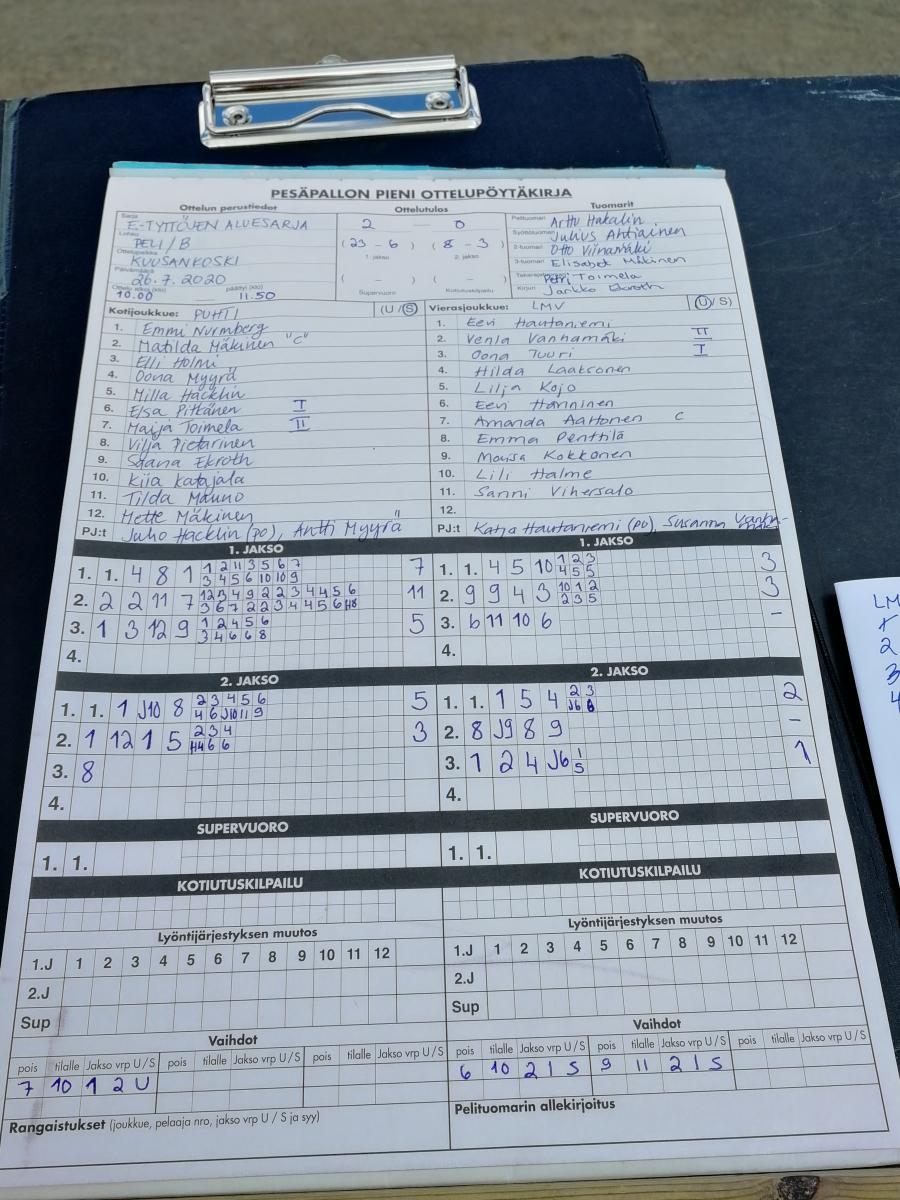 PESÄPALLON PIENI OTTELUPÖYTÄKIRJA
Ottelun perustiedot Ottelutulos Tuomarit
Sarja E-TYTTÖJEN ALUESARJA 2 — 0 Pelituomari Arttu Hakalin
Lohko PELI/B (23 - 6) (8 - 3) Syöttötuomari Julius Ahtiainen
Ottelupaikka KUUSANKOSKI 1. jakso 2. jakso 2-tuomari Otto Viinamäki
Päivämäärä 26.7.2020 ( ) ( — ) 3-tuomari Elisabet Mäkinen
Ottelu alkoi (klo) 10.00 päättyi (klo) 11.50 Supervuoro Kotiutuskilpailu Takarajatuomari Petri Toimela
Kirjuri Jarkko Ekroth
Kotijoukkue: PUHTI (U/S) Vierasjoukkue: LMV (U/S)
1. Emmi Nurmberg 1. Eevi Hautaniemi
2. Matilda Mäkinen "C" 2. Venla Vanhamäki II
3. Elli Holmi 3. Oona Tuuri I
4. Oona Myyrä 4. Hilda Laaksonen
5. Milla Häcklin 5. Lilja Kojo
6. Elsa Pitkänen I 6. Eevi Hänninen
7. Maija Toimela II 7. Amanda Aaltonen C
8. Vilja Pietarinen 8. Emma Penttilä
9. Saana Ekroth 9. Mousa Kokkonen
10. Kiia Katajala 10. Lili Halme
11. Tilda Mauno 11. Sanni Vihersalo
12. Mette Mäkinen 12.
PJ:t Juho Häcklin (PO), Antti Myyrä PJ:t Katja Hautaniemi (PO), Susanna Vanhamäki
1. JAKSO 1. JAKSO
1. 1. 4 8 1 1 2 11 3 5 6 7 7 1. 1. 4 5 10 1 2 3 3
3 4 5 6 10 10 9 4 5 5
2. 2 2 11 7 12 3 4 9 2 2 3 4 4 5 6 11 2. 9 9 4 3 10 1 2 3
3 6 7 2 2 3 4 4 5 6 2 3 5
3. 1 3 12 9 1 2 4 5 6 5 3. 6 11 10 6 -
3 4 6 6 8
4. 4.
2. JAKSO 2. JAKSO
1. 1. 1 J10 8 2 3 4 5 6 5 1. 1. 1 5 4 2 3 2
4 6 J10 11 9 J6
2. 1 12 1 5 2 3 4 3 2. 8 J9 8 9 -
6 6
3. 8 3. 1 2 4 J6 1 1
5
4. 4.
SUPERVUORO SUPERVUORO
1. 1. 1. 1.
KOTIUTUSKILPAILU KOTIUTUSKILPAILU
Lyöntijärjestyksen muutos Lyöntijärjestyksen muutos
1.J 1 2 3 4 5 6 7 8 9 10 11 12 1.J 1 2 3 4 5 6 7 8 9 10 11 12
2.J 2.J
Sup Sup
Vaihdot Vaihdot
pois tilalle Jakso vrp U/S pois tilalle Jakso vrp U/S pois tilalle Jakso vrp U/S pois tilalle Jakso vrp U/S pois tilalle Jakso vrp U/S pois tilalle Jakso vrp U/S
7 10 1 2 U 6 10 2 1 S 9 11 2 1 S
Rangaistukset (joukkue, pelaaja nro, jakso vrp U / S ja syy) Pelituomarin allekirjoitus
LM
2
3
4